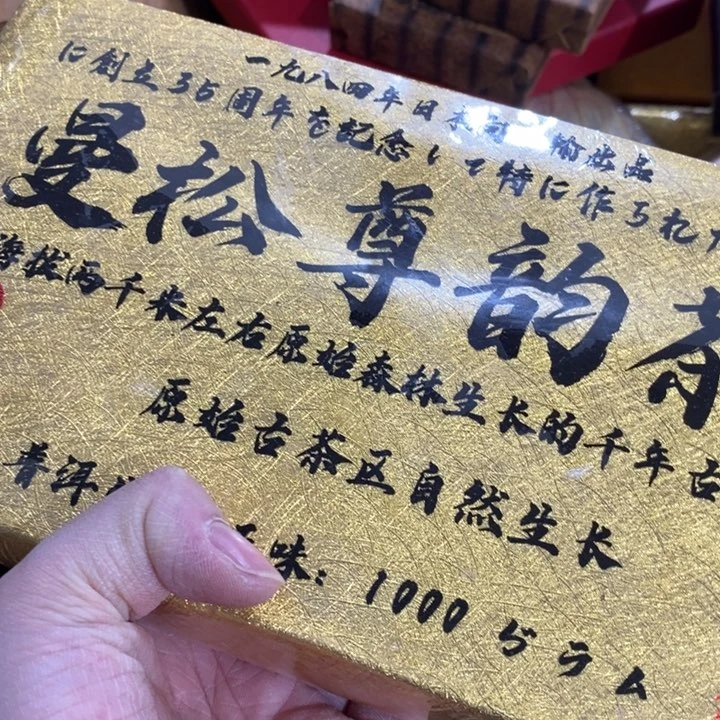 一九八四年日本 輸出品
に創立35周年を記念して特に作られた
曼松尊韵茶
海拔两千米左右原始森林生长的千年古
原始古茶区自然生长
普洱 味：1000 ぢラム